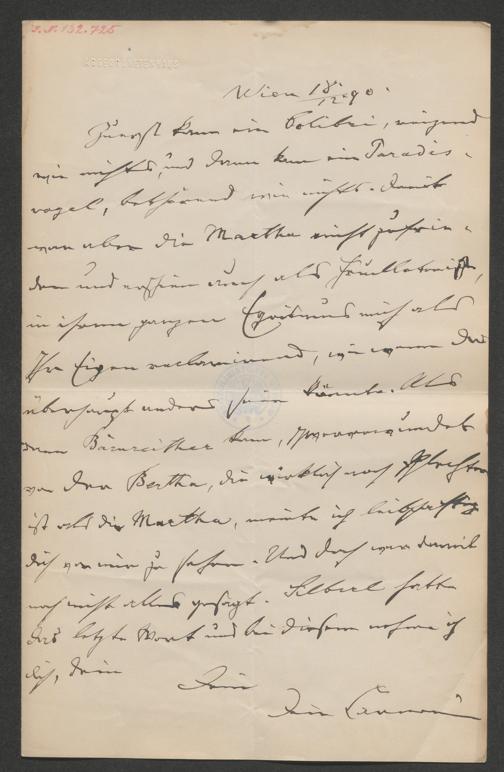 I.N. 132.725
ABGEORDNETENHAUS
Wien 18./12. 90.
Zuerst kam ein Colibri, reizend
wie nichts, und dann kam ein Paradis-
vogel, bethörend wie nichts. Damit
war aber die Martha nicht zufrie-
den und erschien auch als
in ihrem ganzen Egoismus mich als
Ihr Eigen reclamirend, wie wenn das
überhaupt anders sein könnte. Als
dann Bärnreither kam,
von der Bertha, die wirklich noch
ist als die Martha, meinte ich leibhaftig
dich vor mir zu sehen. Und doch war damit
noch nicht alles gesagt. hatte
das letzte Wort und bei diesem nehme ich
dich, dein
Dein
Dein Carneri